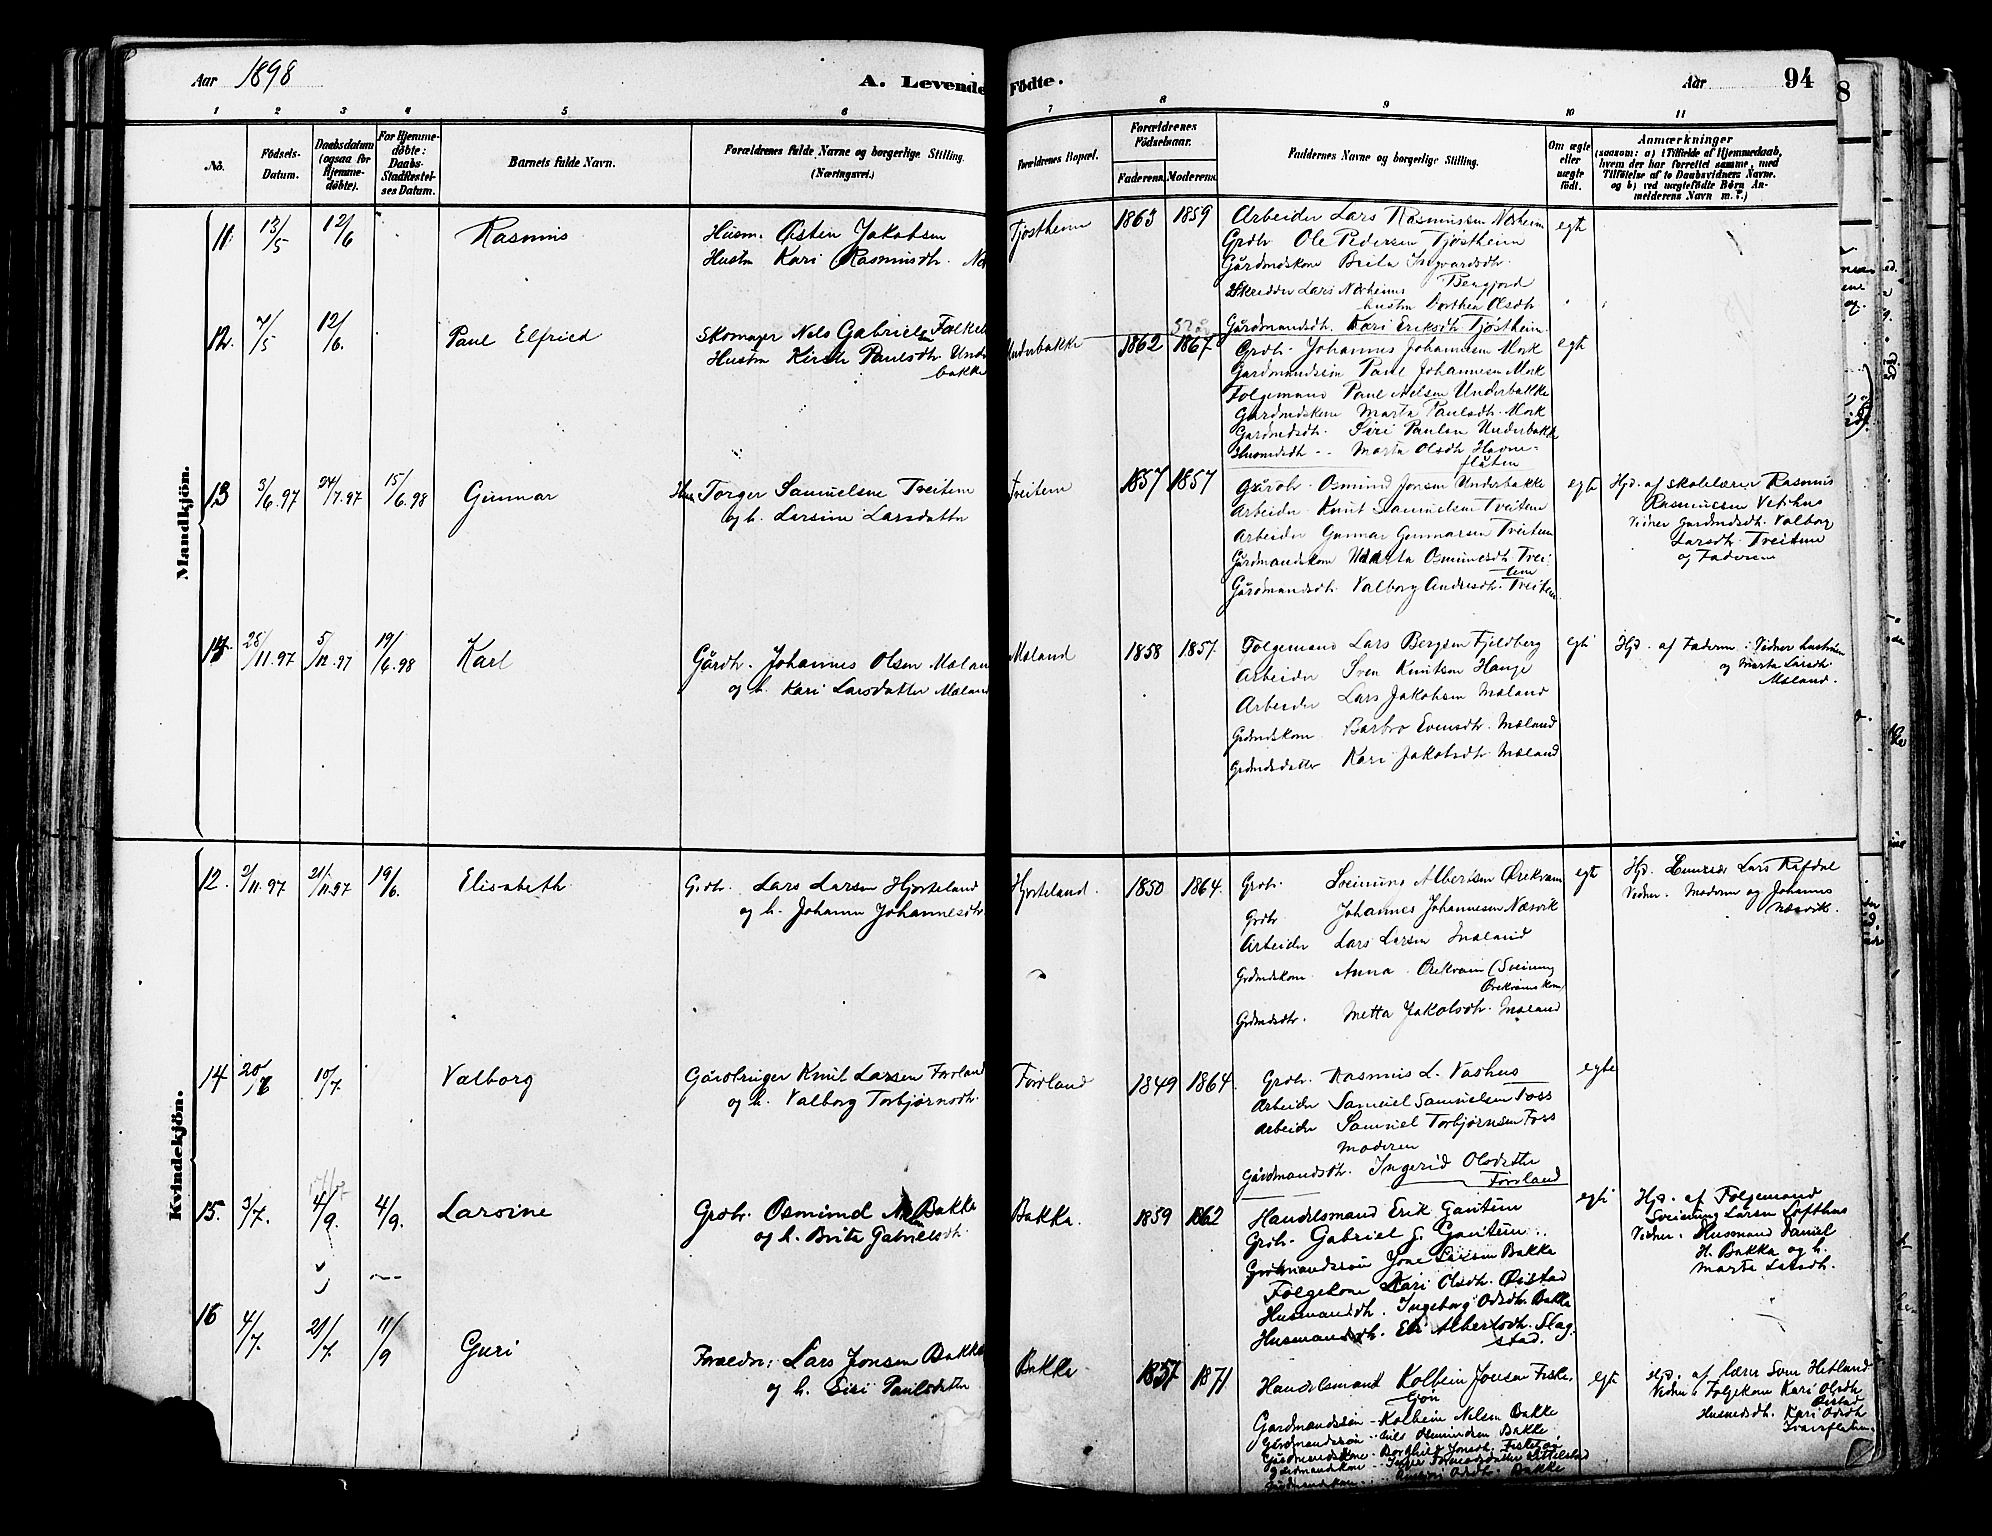 Aar 1898
A. Levende Födte.
Aar 94
1 2 3 4 5 6 7 8 9 10 11
No.
Födsels-Datum.
Daabsdatum (ogsaa for Hjemmedöbte).
For Hjemmedöbte: Daabs-Stadfæstelses Datum.
Barnets fulde Navn.
Forældrenes fulde Navne og borgerlige Stilling. (Næringsvei.)
Forældrenes Bopæl.
Forældrenes Födselsaar.
Faderens. Moderens.
Faddernes Navne og borgerlige Stilling.
Om ægte eller uægte födt.
Anmærkninger
(saasom: a) i Tilfælde af Hjemmedaab,
hvem der har forrettet samme, med
Tilföielse af to Daabsvidners Navne.
og b) ved uægtefödte Börn Anmelderens Navn m. v.)
Mandkjön.
11. 13/5 12/6 Rasmus
Husm. Østen Jakobsen
Hustru Kari Rasmusdtr.
Tjøstheim 1863 1859
Arbeider Lars Rasmussen Nørheim
Grdbr. Ole Pedersen Tjøstheim
Gårdmdskone Brita Ingvardsdtr.
Bergfjord
Skredder Lars Nørheims
hustru Dorthea Olsdtr
Gårdmandsdtr. Kari Eriksdtr Tjøstheim
egt
12. 7/5 12/6. Paul Elfried
Skomager Nels Gabrielsen
Hustru Kirsti Paulsdtr. Underbakke
Underbakke 1862 1867
Grdbr. Johannes Johannesen Mork
Gardmandssøn Paul Johannesen Mork
Følgemand Paul Nelsen Underbakke
Gardmdskone Marta Paulsdtr. Mork
Gardmdsdtr. Siri Paulsen Underbakke
Husmdsdtr - - Marta Olsdtr Havreflåten
egt
13 3/6.97 24/7.97 15/6.98 Gunnar
Hus. Torger Samuelsen Tveitem
og h. Larsine Larsdatter
Tveitem 1857 1857
Gårdbr. Osmund Jonsen Underbakke
Arbeider Knut Samuelsen Tveitem
Arbeider Gunnar Gunnarsen Tveitem
Gårdmandskone Marta Osmundsdtr. Tveitem
Gårdmandsdtr. Valborg Andresdtr. Tveitem
egt
Hjd. af skolelærer Rasmus
Rasmussen Vetrhus
Vidner gardmdsdtr. Valborg
Larsdtr. Tveitem
og Faderen
14. 28/11.97 5/12.97 19/6.98 Karl
Gårdbr. Johannes Olsen Mæland
og h. Kari Larsdatter Mæland
Mæland 1858 1857.
Følgemand Lars Bergsen Fjeldberg
Arbeider Sven Knutson Hauge
Arbeider Lars Jakobsen Mæland
Grdmdskone Barbro Evensdtr. Mæland
Grdmdsdatter Kari Jakobsdtr. Mæland
egt
Hjd. af Faderen. Vidner hustruen
og Marta Larsdtr.
Mæland.
Kvindekjön.
12. 2/11.97 21/11.97 19/6. Elisabeth
Grdbr. Lars Larsen Hjorteland
og h. Johanna Johannesdtr.
Hjorteland. 1850 1864.
Grdbr. Sveinung Albertsen Ørekvam
Grdbr Johannes Johannesen Næsvik
Arbeider Lars Larsen Mæland
Grdmdskone. Anna Ørekvam (Sveinung
Ørekvams kone)
Grdmdsdtr. Metta Jakobsdtr. Mæland
egt
Hjd. Lars Rafdal
Vidner. Moderen og Johannes
Næsvik.
14 20/6 10/7. Valborg
Gårdbruger Knut Larsen Førland
og h. Valborg Torbjørnsdtr.
Førland 1849 1864.
Grdbr. Rasmus L. Vashus
Arbeider Samuel Samuelsen Foss
Arbeider Samuel Torbjørnsen Foss
Moderen
Gårdmandsdtr. Ingerid Olsdatter
Førland
egte
15. 3/7. 4/9. 4/9. Larsine
Grdbr. Osmund Bakka
og h. Brita Gabrielsdtr.
Bakka. 1859 1862
Handelsmand Erik Gautun
Grdbr. Gabriel G. Gautun
Grdmandssøn Jone Larsen Bakka
Følgekone Kari Olsdtr. Øistad
Husmandsdtr. Ingeborg Odsdtr. Bakka
Husmandsdtr. Eli Albertsdtr. Slagstad.
egt
Hjd. af Følgemand
Sveinung Larsen Lofthus
Vidner. Husmand Daniel
H. Bakka og h.
Marta Larsdtr.
16 4/7. 21/7. 11/9 Guri
Forældr: Lars Jonsen Bakka
og h. Siri Paulsdatter
Bakka 1857 1871
Handelsmand Kolbein Jonsen Fisketjøn
Gardmandssøn - Kolbein Nilsen Bakke
Gårdmandssøn - Nils Osmundsen Bakke,
Gårdmandskone - Borghild Jonsdtr.
egt
Hjd. af lærer Sven Hetland
Vidner. Følgekone Kari Olsdtr.
Øistad
Husmdsdtr. Kari Odsdtr